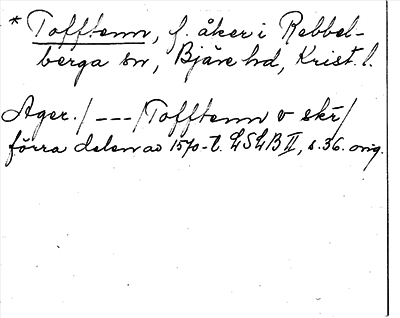 * Tofftenn, f. åker i Rebbel-
berga sn, Bjäre hd, Krist. l.
Ager. / --- / Tofftenn v skr /
förra delen av 1570-t. LSLB II, s. 36. orig.